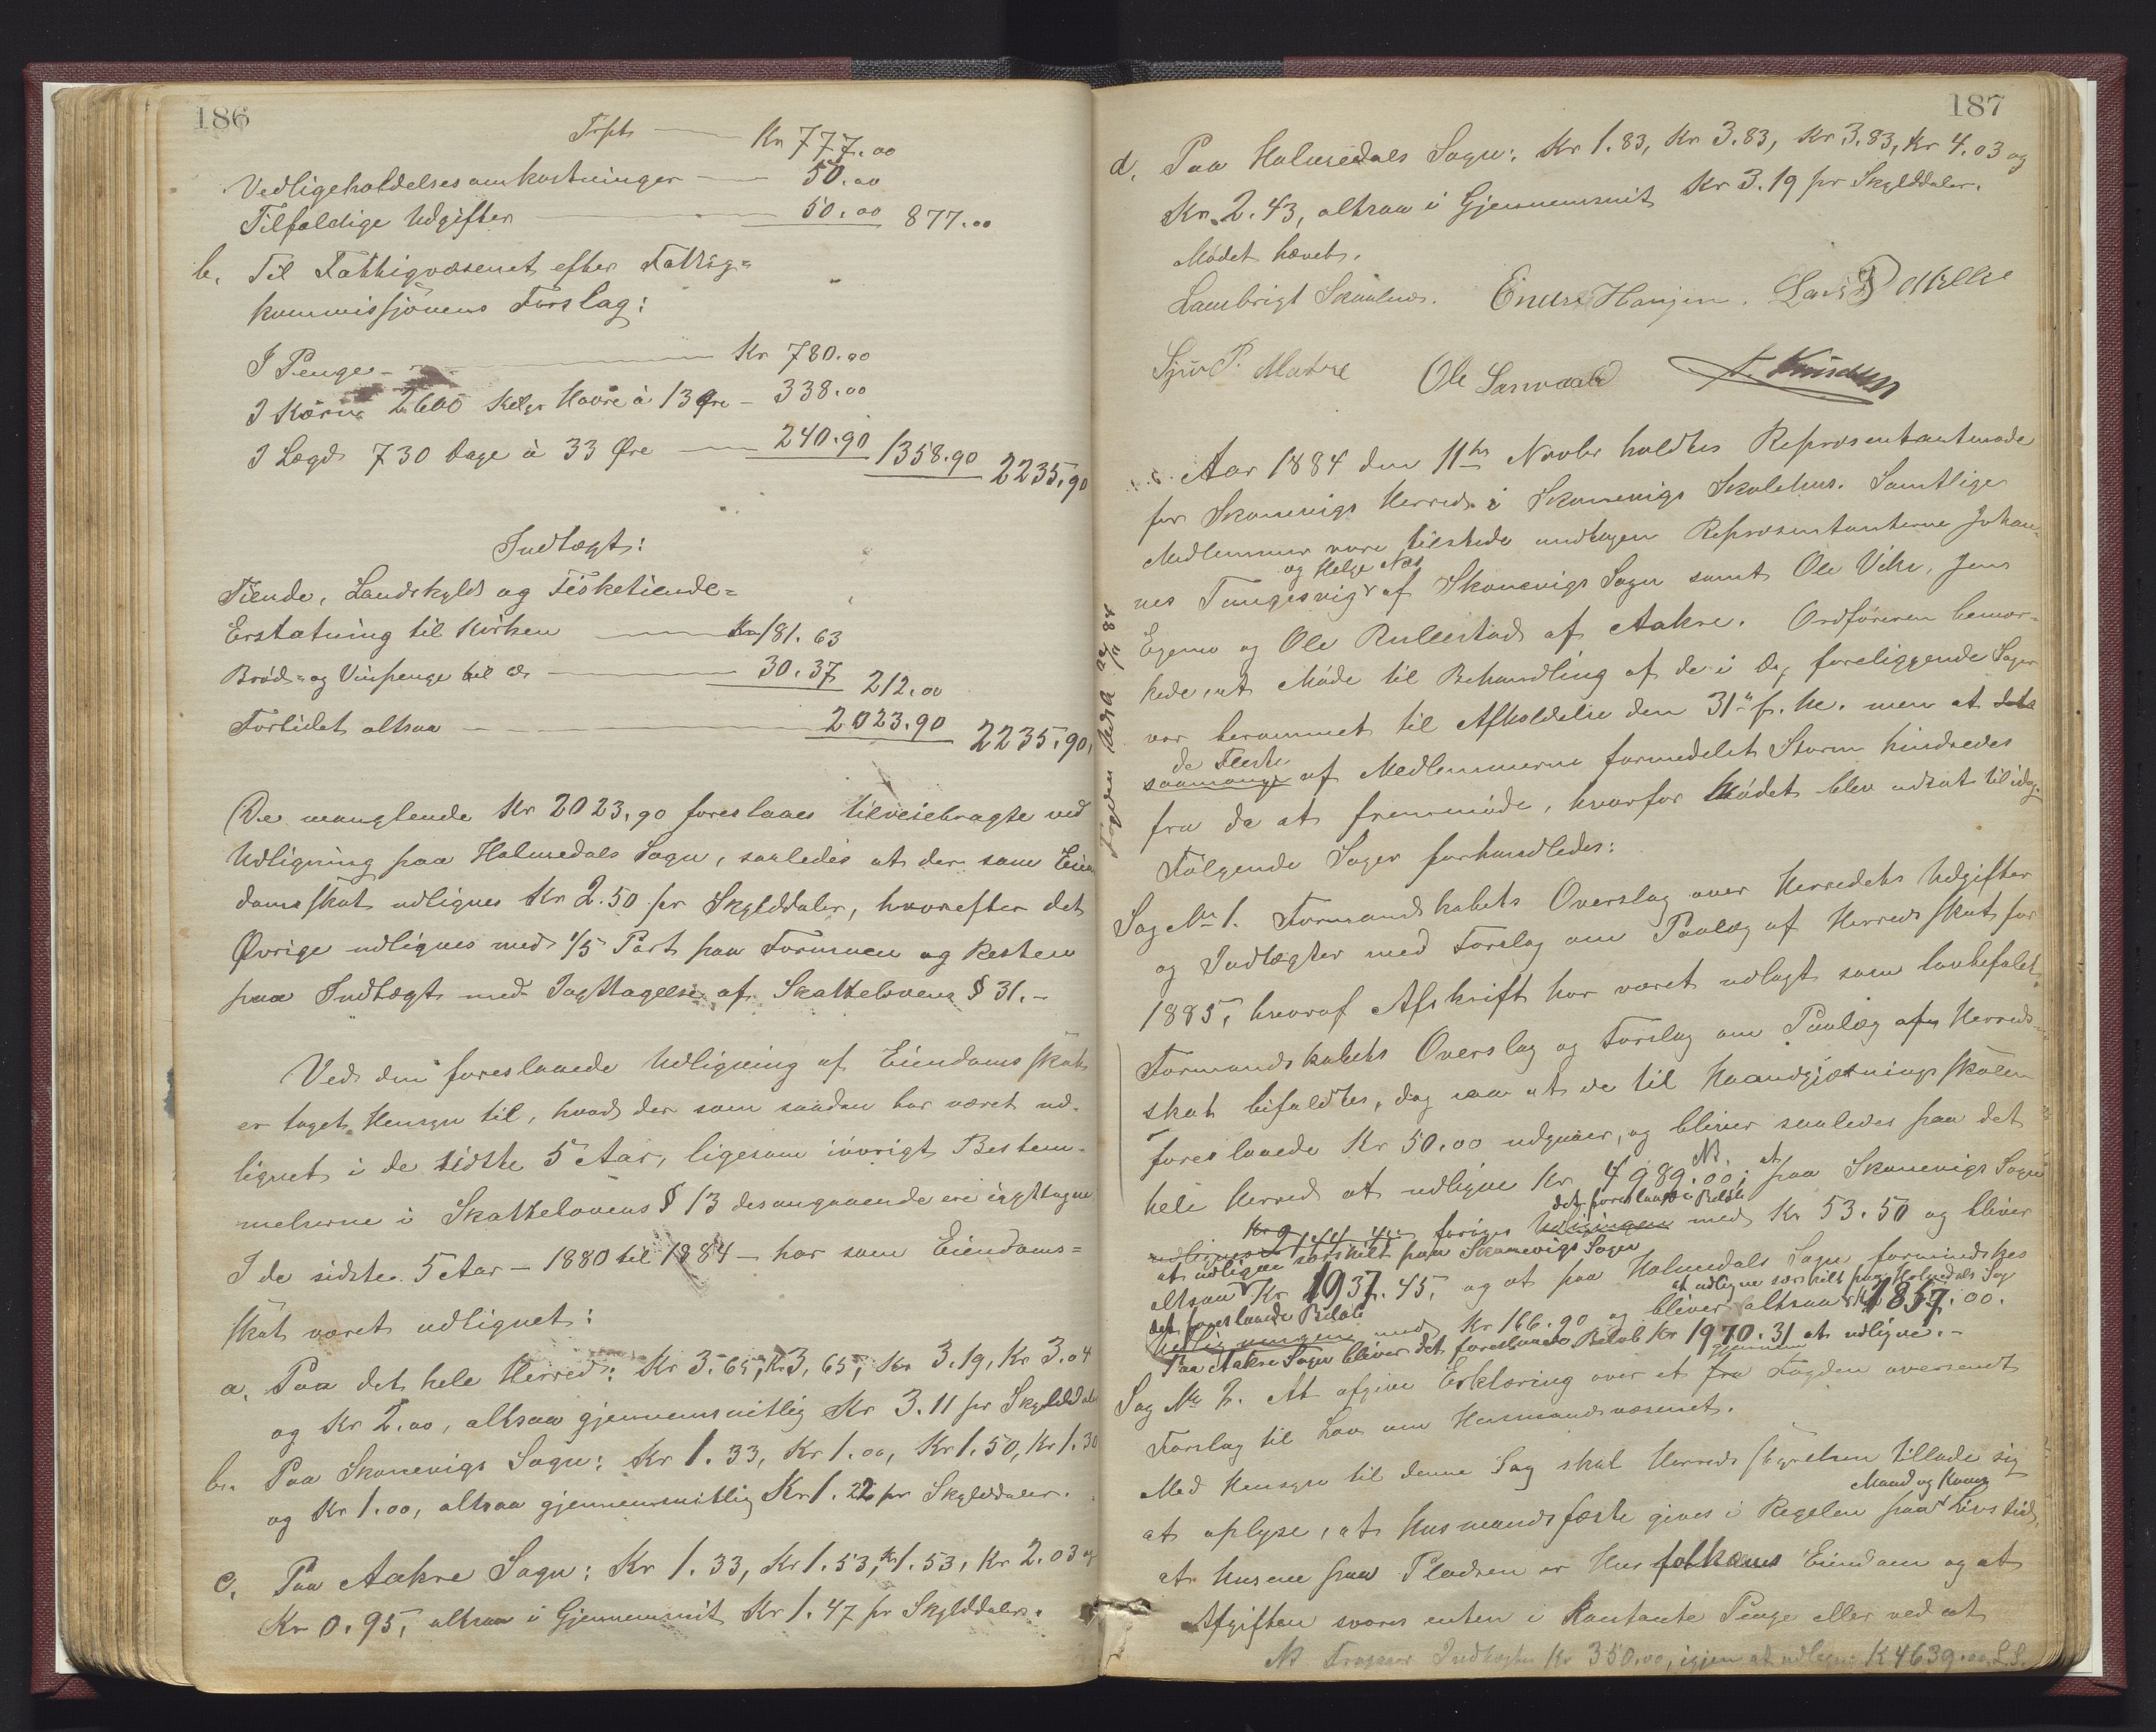 186
Trpt Kr 777.00
Vedligeholdelsesomkostninger 50.00
Tilfældige Udgifter 50.00 877.00
b. Til Fattigvæsenet efter Fattig=
kommissjonens Forslag:
I Penge Kr 780.00
I Korn 2600 Kilgr Havre à 13 Øre 338.00
I Lægd 730 Dage à 33 Øre 240.90 1358.90 2235.90
Indtægt:
Tiende, Landskyld og Fisketiende=
Erstatning til Kirken Kr 181.63
Brød- og Vinpenge til do 30.37 212.00
Forbidet altsaa 2023.90 2235.90,
De manglende Kr 2023,90 foreslaaes tilveiebragte ved
Udligning paa Holmedals Sogn, saaledes at der som Eien
domsskat udlignes Kr 2.50 pr Skylddaler, hvorefter det
Øvrige udlignes med 1/5 Part paa Formuen og Resten
paa Indtægt med Iagttagelse af Skattelovens § 31.-
Ved den foreslaaede Udligning af Eiendomsskat
er taget Hensyn til, hvad der som saadan har været ud-
lignet i de sidste 5 Aar, ligesom iøvrigt Bestem-
melserne i Skattelovens § 13 desangaaende ere iagttagne
I de sidste 5 Aar - 1880 til 1884 - har som Eiendoms=
skat været udlignet:
a. Paa det hele Herred: Kr 3.65, Kr 3,65, Kr 3.19, Kr 3.04
og Kr 2.00, altsaa gjennemsnitlig Kr 3.11 pr Skylddaler
b. Paa Skonevigs Sogn: Kr 1.33, Kr 1.00, Kr 1.50, Kr 1.30
og Kr 1.00, altsaa gjennemsnitlig Kr 1.22 pr Skylddaler.
c. Paa Aakre Sogn: Kr 1.33, Kr 1.53, Kr 1.53, Kr 2.03 og
Kr 0.95, altsaa i Gjennemsnit Kr 1.47 pr Skylddaler.
187
d. Paa Holmedals Sogn: Kr 1.83, Kr 3.83, Kr 3.83, Kr 4.03 og
Kr 2.43, altsaa i Gjennemsnit Kr 3.19 pr Skylddaler.
Mødet hævet.
Lambrigt Skaalnes. Endre Haugen.
Sjur P. Matre Ole Sarvaald
Aar 1884 den 11te Novbr holdtes Repræsentantmøde
for Skonevigs Herred i Skonevigs Skolehus. Samtlige
Medlemmer vare tilstede undtagen Repræsentanterne Johan-
og Helge Næs
nes Tungesvig af Skonevigs Sogn samt Ole Vike, Jens
Egemo og Ole Rullestad af Aakre. Ordføreren bemær-
kede, at Møde til Behandling af de i Dag foreliggende Sager
var berammet til Afholdelse den 31te f. M. men at
de Fleste
saamange af Medlemmerne formedelst Storm hindredes
fra da at fremmøde, hvorfor Mødet blev udsat til idag.
Følgende Sager forhandledes:
Sag No 1. Formandskabets Overslag over Herredets Udgifter
og Indtægter med Forslag om Paalæg af Herredsskat for
1885, hvoraf Afskrift har været udlagt som lovbefalet.
Formandskabets Overslag og Forslag om Paalæg af Herreds-
skat bifaldtes, dog saa at de til Haandgjerningsskolen
foreslaaede Kr 50.00 udgaaer, og bliver saaledes paa det
NB. at
hele Herred at udligne Kr 4989.00; paa Skonevigs Sogn
det foreslaaede Beløb
forøges Udligningen med Kr 53.50 og bliver
at udligne særskilt paa Skonevigs Sogn
altsaa Kr 1937.45, og at paa Holmedals Sogn formindskes
at udligne særskilt paa Holmedals Sogn
det foreslaaede Beløb
Udligningen med Kr 166.90 og bliver altsaa Kr 1857.00.
Paa Aakre Sogn bliver det foreslaaede Beløb Kr 1970.31 at udligne.-
gjennem
Sag No 2. At afgive Erklæring over et fra Fogden oversendt
Forslag til Lov om Husmandsvæsenet.
Med Hensyn til denne Sag skal Herredsstyrelsen tillade sig
Mand og Kones
at oplyse, at Husmandsfæste gives i Regelen paa Livstid,
at Husene paa Pladsen er Husfolkenes Eiendom og at
Afgiften svares enten i kontante Penge eller ved at
NB Fragaar Indtægter Kr 350.00, igjen at udligne Kr 4639.00. L.S.